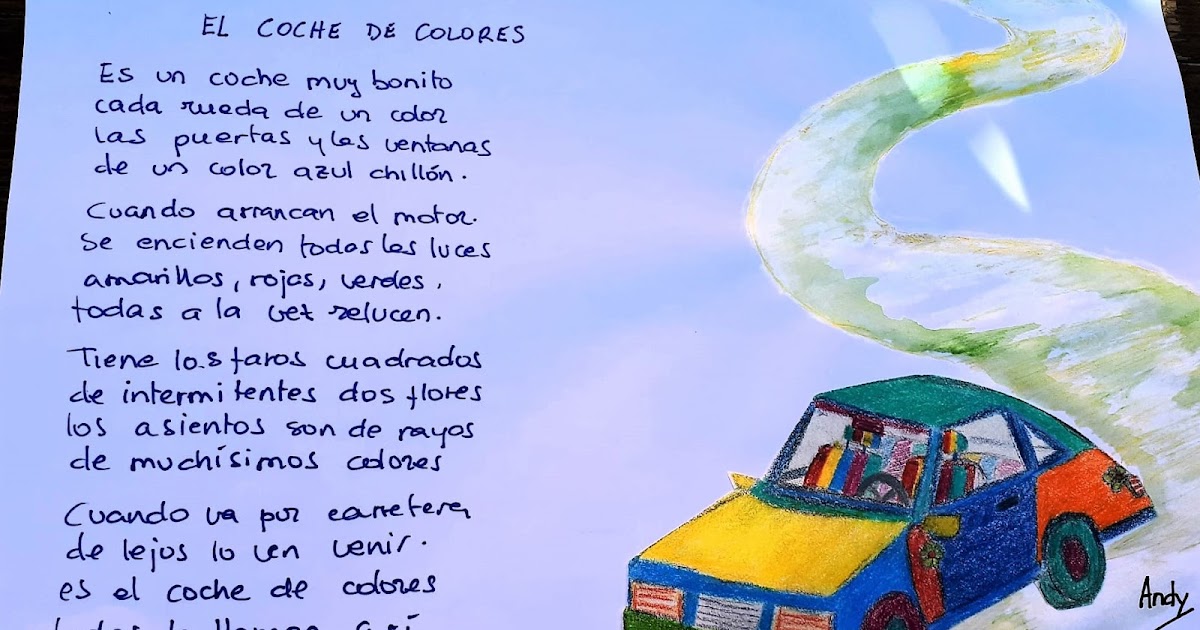 EL COCHE DE COLORES
Es un coche muy bonito
cada rueda de un color
las puertas y las ventanas
de un color azul chillón.
Cuando arrancan el motor.
Se encienden todas las luces
amarillas, rojas, verdes,
todas a la vez relucen.
Tiene los faros cuadrados
de intermitentes dos flores
los asientos son de rayas
de muchísimos colores
Cuando va por carretera
de lejos lo ven venir.
es el coche de colores
Andy